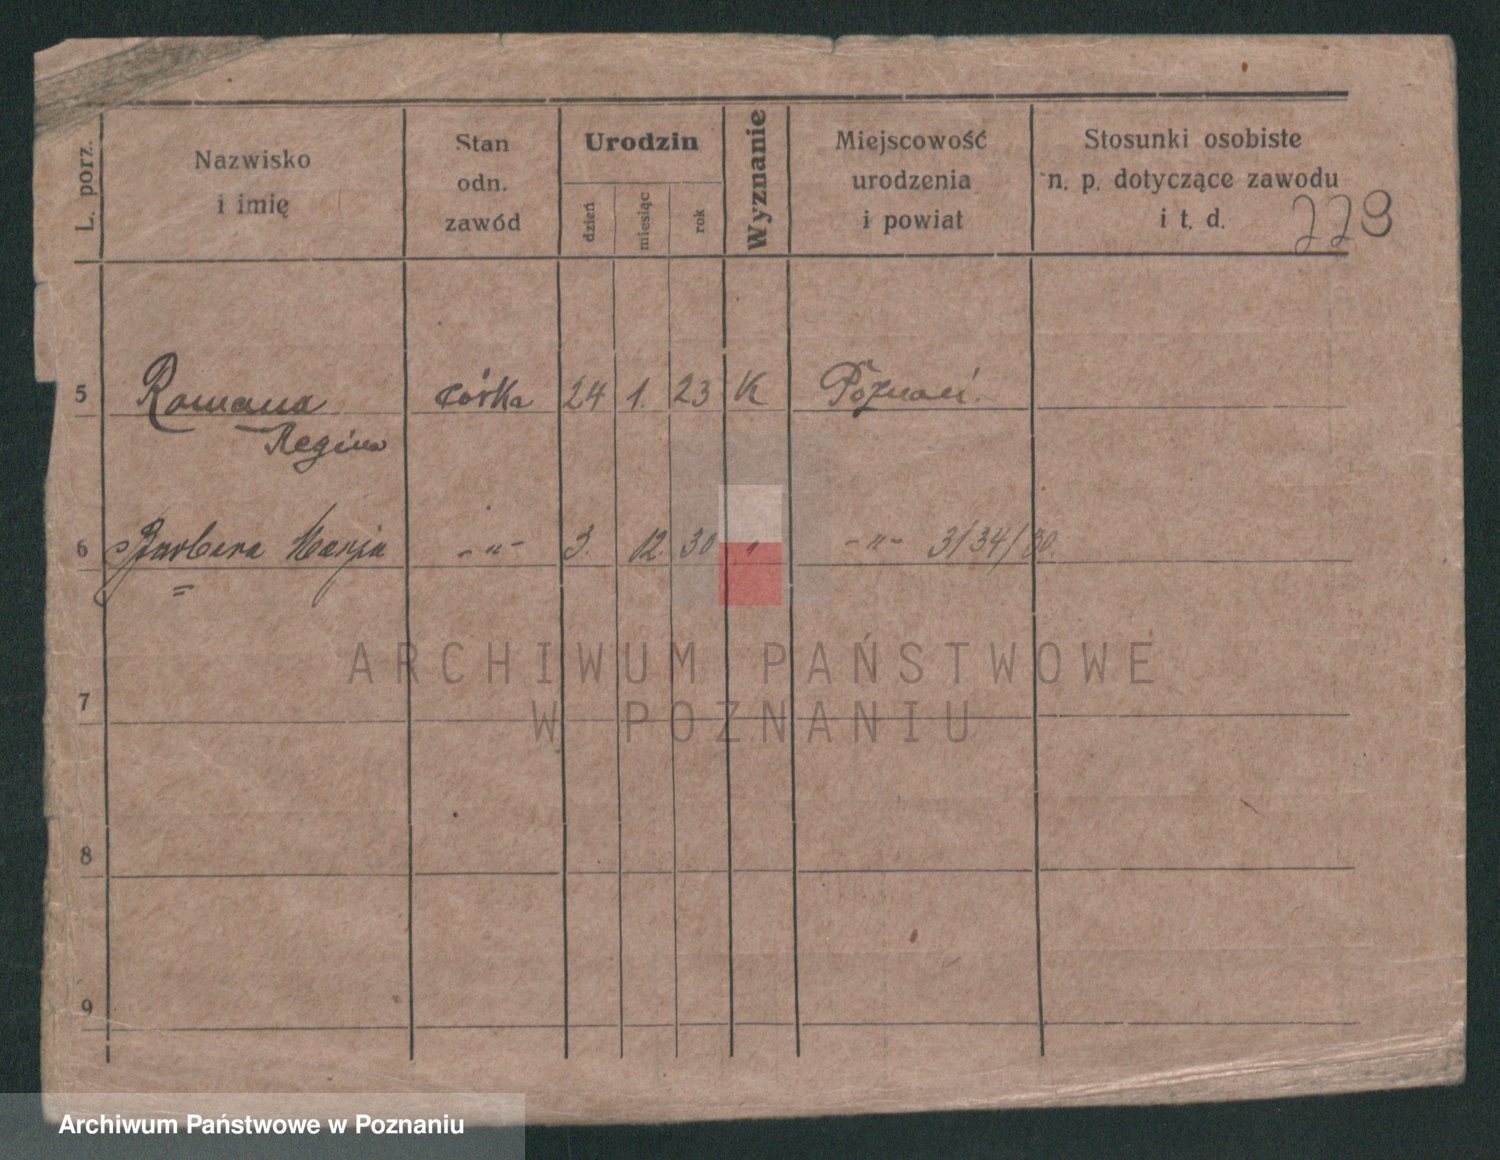 L. porz.
Nazwisko
i imię
Stan
odn.
zawód
Urodzin
dzień
miesiąc
rok
Wyznanie
Miejscowość
urodzenia
i powiat
Stosunki osobiste
n. p. dotyczące zawodu
i t. d.
228
5 Romana córka 24 1. 23 K Poznań.
Regina
6 Barbara Marja -"- 3. 12. 30 " -"- 3/34/30.
7
8
9
ARCHIWUM PAŃSTWOWE
W POZNANIU
Archiwum Państwowe w Poznaniu